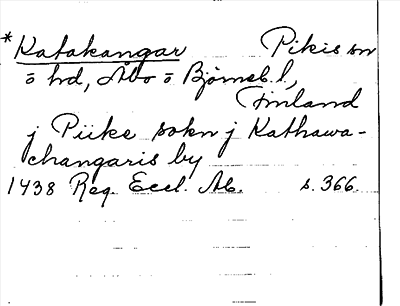 *Katakangar Pikis sn
o hd, Åbo o Björneb. l,
Finland
j Piike sokn j Kathawa-
changaris by
1438 Reg. Eccl. Ab. s. 366.